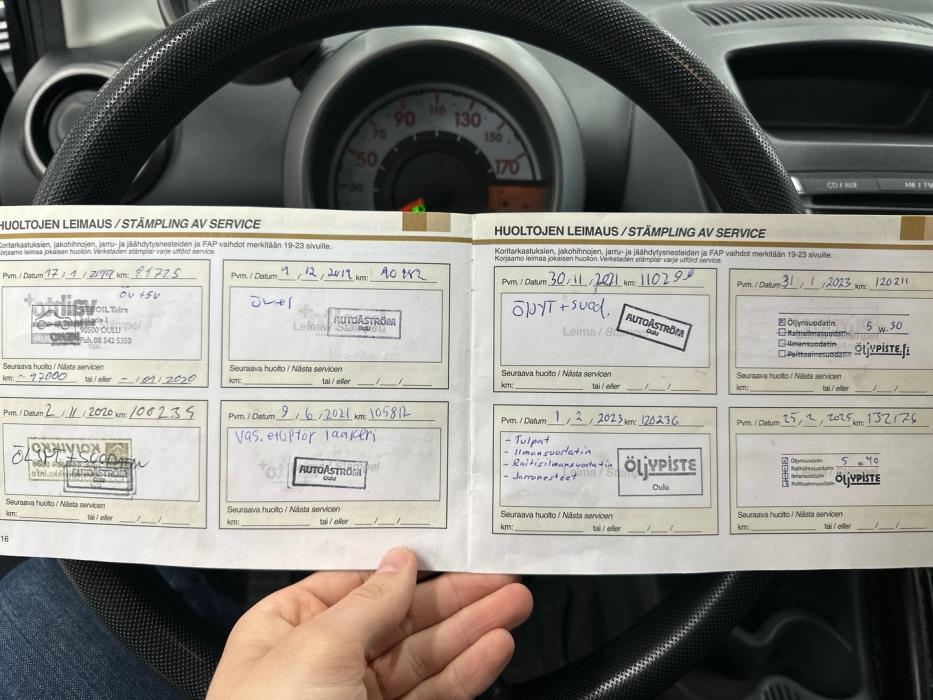 50
70
90
110
130
150
170
CD / AUX
AM / 
HUOLTOJEN LEIMAUS / STÄMPLING AV SERVICE
Koritarkastuksien, jakohihnojen, jarru- ja jäähdytysnesteiden ja FAP vaihdot merkitään 19-23 sivuille.
Korjaamo leimaa jokaisen huollon. Verkstaden stämplar varje utförd service.
Pvm. / Datum 17 / 1 / 2019 km: 91725
öv + sv
OIL Tuira
90500 OULU
Puh. 08 542 5350
Seuraava huolto / Nästa servicen
km: ~ 97000 tai / eller ~ / 01 / 2020
Pvm. / Datum 1 / 12 / 2019 km:
AUTOÅSTRÖM
Oulu
Seuraava huolto / Nästa servicen
km: tai / eller / /
Pvm. / Datum 2 / 11 / 2020 km: 100235
AUTOÅSTRÖM
Oulu
Seuraava huolto / Nästa servicen
km: tai / eller / /
Pvm. / Datum 9 / 6 / 2021 km: 105812
Vas. etupyör laakeri
AUTOÅSTRÖM
Oulu
Seuraava huolto / Nästa servicen
km: tai / eller / /
16
HUOLTOJEN LEIMAUS / STÄMPLING AV SERVICE
Koritarkastuksien, jakohihnojen, jarru- ja jäähdytysnesteiden ja FAP vaihdot merkitään 19-23 sivuille.
Korjaamo leimaa jokaisen huollon. Verkstaden stämplar varje utförd service.
Pvm. / Datum 30 / 11 / 2021 km:
ÖLJYT + suod.
Leima /
AUTOÅSTRÖM
Oulu
Seuraava huolto / Nästa servicen
km: tai / eller / /
Pvm. / Datum 31 / 1 / 2023 km: 120211
Öljynsuodatin
Raitisilmansuodatin
Ilmansuodatin
Polttoainesuodatin
5 W-30
ÖLJYPISTE.fi
Seuraava huolto / Nästa servicen
km: tai / eller / /
Pvm. / Datum 1 / 2 / 2023 km: 120236
- Tulpat
- Ilmansuodatin
- Raitisilmansuodatin
- Jarrunesteet
ÖLJYPISTE
Oulu
Seuraava huolto / Nästa servicen
km: tai / eller / /
Pvm. / Datum 25 / 2 / 2025 km: 132176
Öljynsuodatin
Raitisilmansuodatin
Ilmansuodatin
Polttoainesuodatin
5 W-40
ÖLJYPISTE
Seuraava huolto / Nästa servicen
km: tai / eller / /